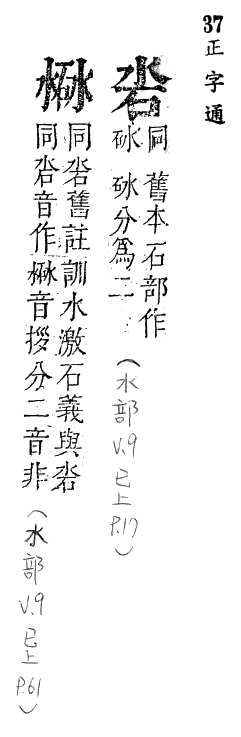 37 正字通
沯
同 舊本石部作
砅 砅分爲二
(水部 V.9 已上 P.17)
同沯舊註訓水激石義與沯
同沯音作 音拶分二音非
(水部 V.9 已上 P.61)